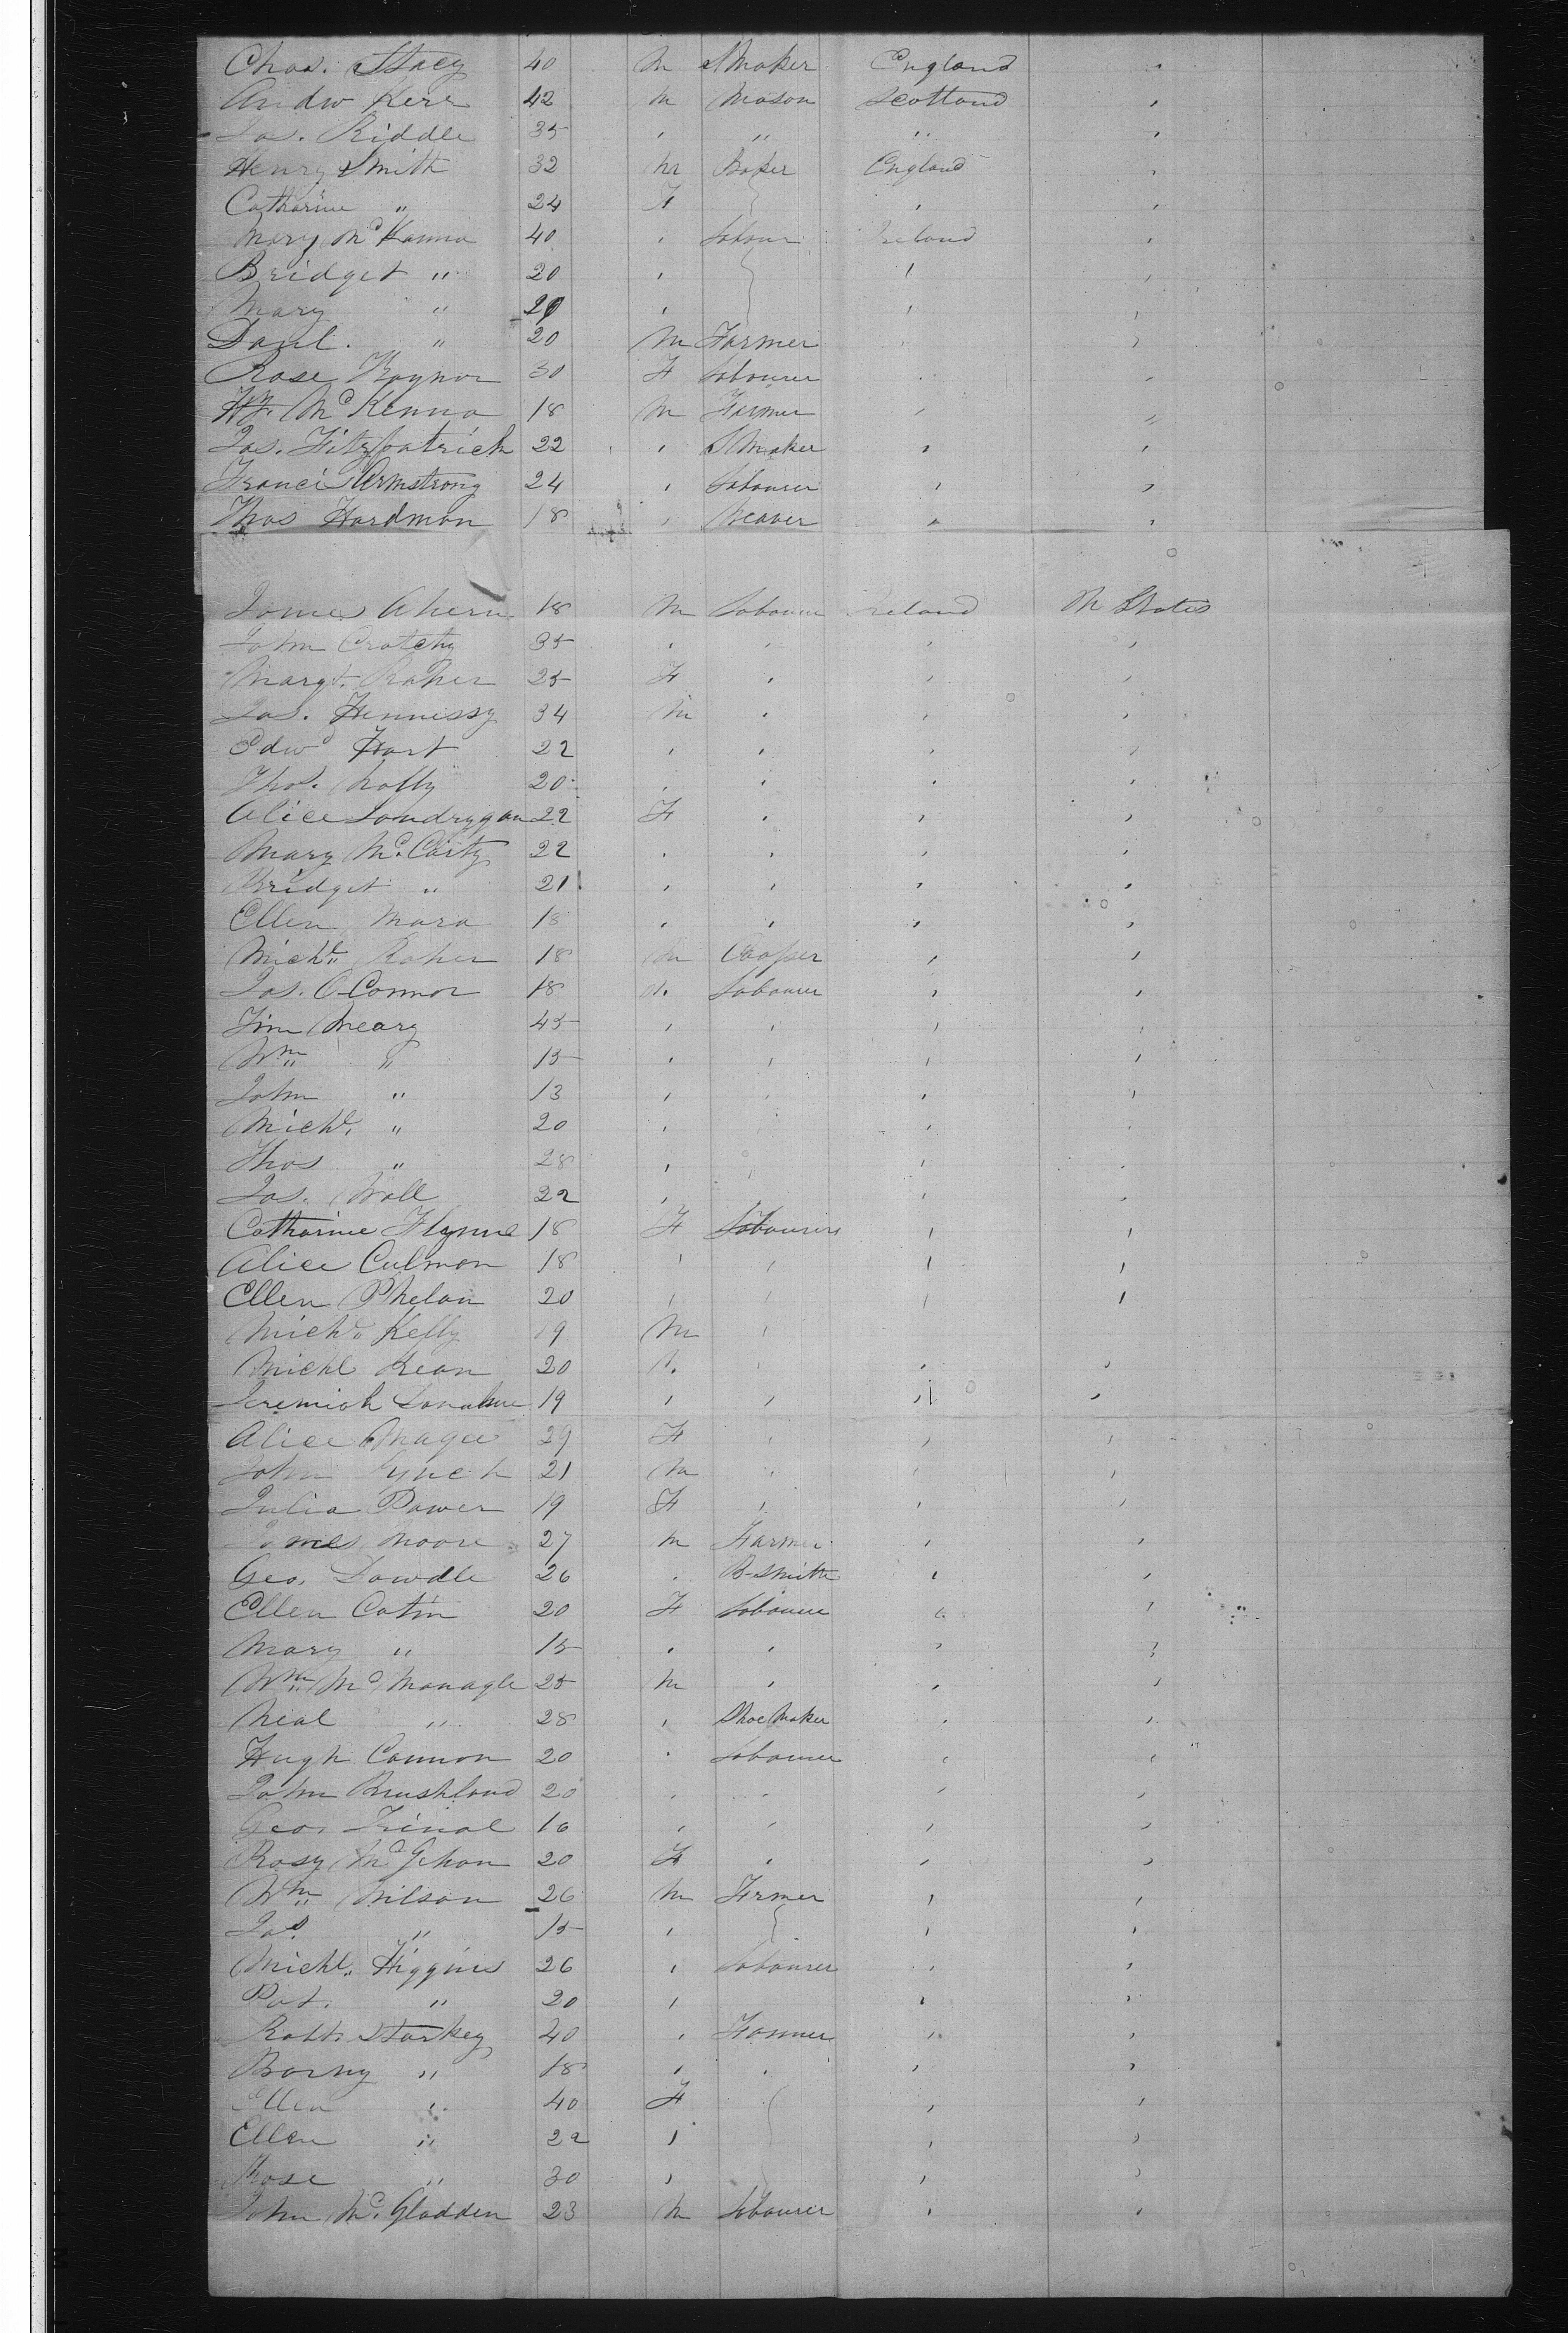 Chas. Stacy 40 M S Maker England "
Andw Kerr 42 M Mason Scotland "
Jas. Riddle 35 " " " "
Henry Smith 32 M Baker England "
Catharine " 24 F " "
Mary McKanna 40 " Labour Ireland "
Bridget " 20 " " "
Mary " " " "
Danl. " 20 M Farmer " "
Rose Raynor 30 F Labourer " "
Wm. McKenna 18 M Farmer " "
Jas. Fitzpatrick 22 " S Maker " "
Franci Armstrong 24 " Labourer " "
Thos Hardman 18 " Weaver " "
James Ahern 18 M Labourer Ireland U States
John Crotchy 35 " " " "
Margt. Raher 25 F " " "
Jas. Hennessy 34 M " " "
Edwd Hart 22 " " " "
Thos. 20 " " " "
Alice Londrygan 22 F " " "
Mary McCarty 22 " " " "
Bridget " 21 " " " "
Ellen Mara 18 " " " "
Michl. Raher 18 M Cooper " "
Jas. O'Connor 18 " Labourer " "
Tim Neary 45 " " " "
Wm " 15 " " " "
John " 13 " " " "
Michl. " 20 " " " "
Thos " 28 " " " "
Jas. Wall 22 " " "
Catharine Flynne 18 F Labourers " "
Alice Culmon 18 " " " "
Ellen Phelan 20 " " " "
Michl. Kelly 19 M "
Michl Kean 20 " " " "
Jeremiah Donahue 19 " " " "
Alice Magee 29 F " " "
John Lynch 21 M " " "
Julia Power 19 F " " "
James Moore 27 M Farmer " "
Geo. Dowdle 26 " B-Smith " "
Ellen Catin 20 F Labourer " "
Mary " 15 " " " "
Wm. McMonagle 25 M " " "
Neal " 28 " Shoe Maker " "
Hugh Cannon 20 " Labourer " "
John Brushland 20 " " " "
Geo. 16 " " " "
Rosy McGehan 20 F " " "
Wm. Wilson 26 M Frmer " "
Jas. " 15 " " "
Michl. Higgins 26 " Labourer " "
Pat. " 20 " " "
Robt. Starkey 40 " Farmer " "
Barny " 18 " " " "
Ellen " 40 F " "
Ellen " 22 " " "
Rose " 30 " " "
John McGladden 23 M Labourer " "